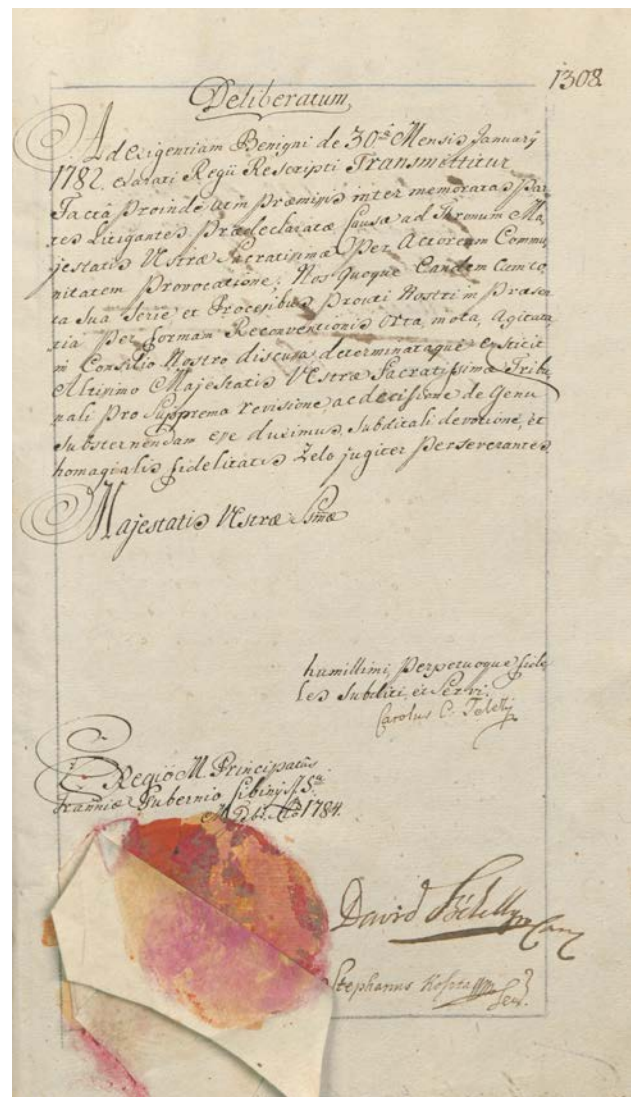 1308
Deliberatum,
Ad exigentiam Benigni de 30ã Mensis January
1782. exarati Regii Rescripti Transmittitur
Facta Proinde in Præmissis inter memoratas Par
tes Litigantes Prædeclaratæ Causæ ad Thronum Ma
jestatis Vestræ Sacratissimæ Per Actoream Commu
nitatem Provocatione; Nos quoque Eandem cum to
ta Sua Serie et Processibus Prouti Nostri in Præsen
tia Per formam Reconventionis orta, mota, agitata
in Consilio Nostro discussa determinataque exstitit
Altissimo Majestatis Vestræ Sacratissimæ Tribu
nali Pro Suprema revisione ac decissione de Genu
substernendam esse duximus, subditali devotione, et
homagialis fidelitatis Zelo jugiter Perseverantes
Majestatis Vestræ Ssmæ
humillimi, Perpetuoque fide
les Subditi, et Servi.
Carolus C. Teleki
E Regio M. Principatus
tranniæ Gubernio Cibiny
1784.
David Székelly
Stephanus Kosta
Secr.